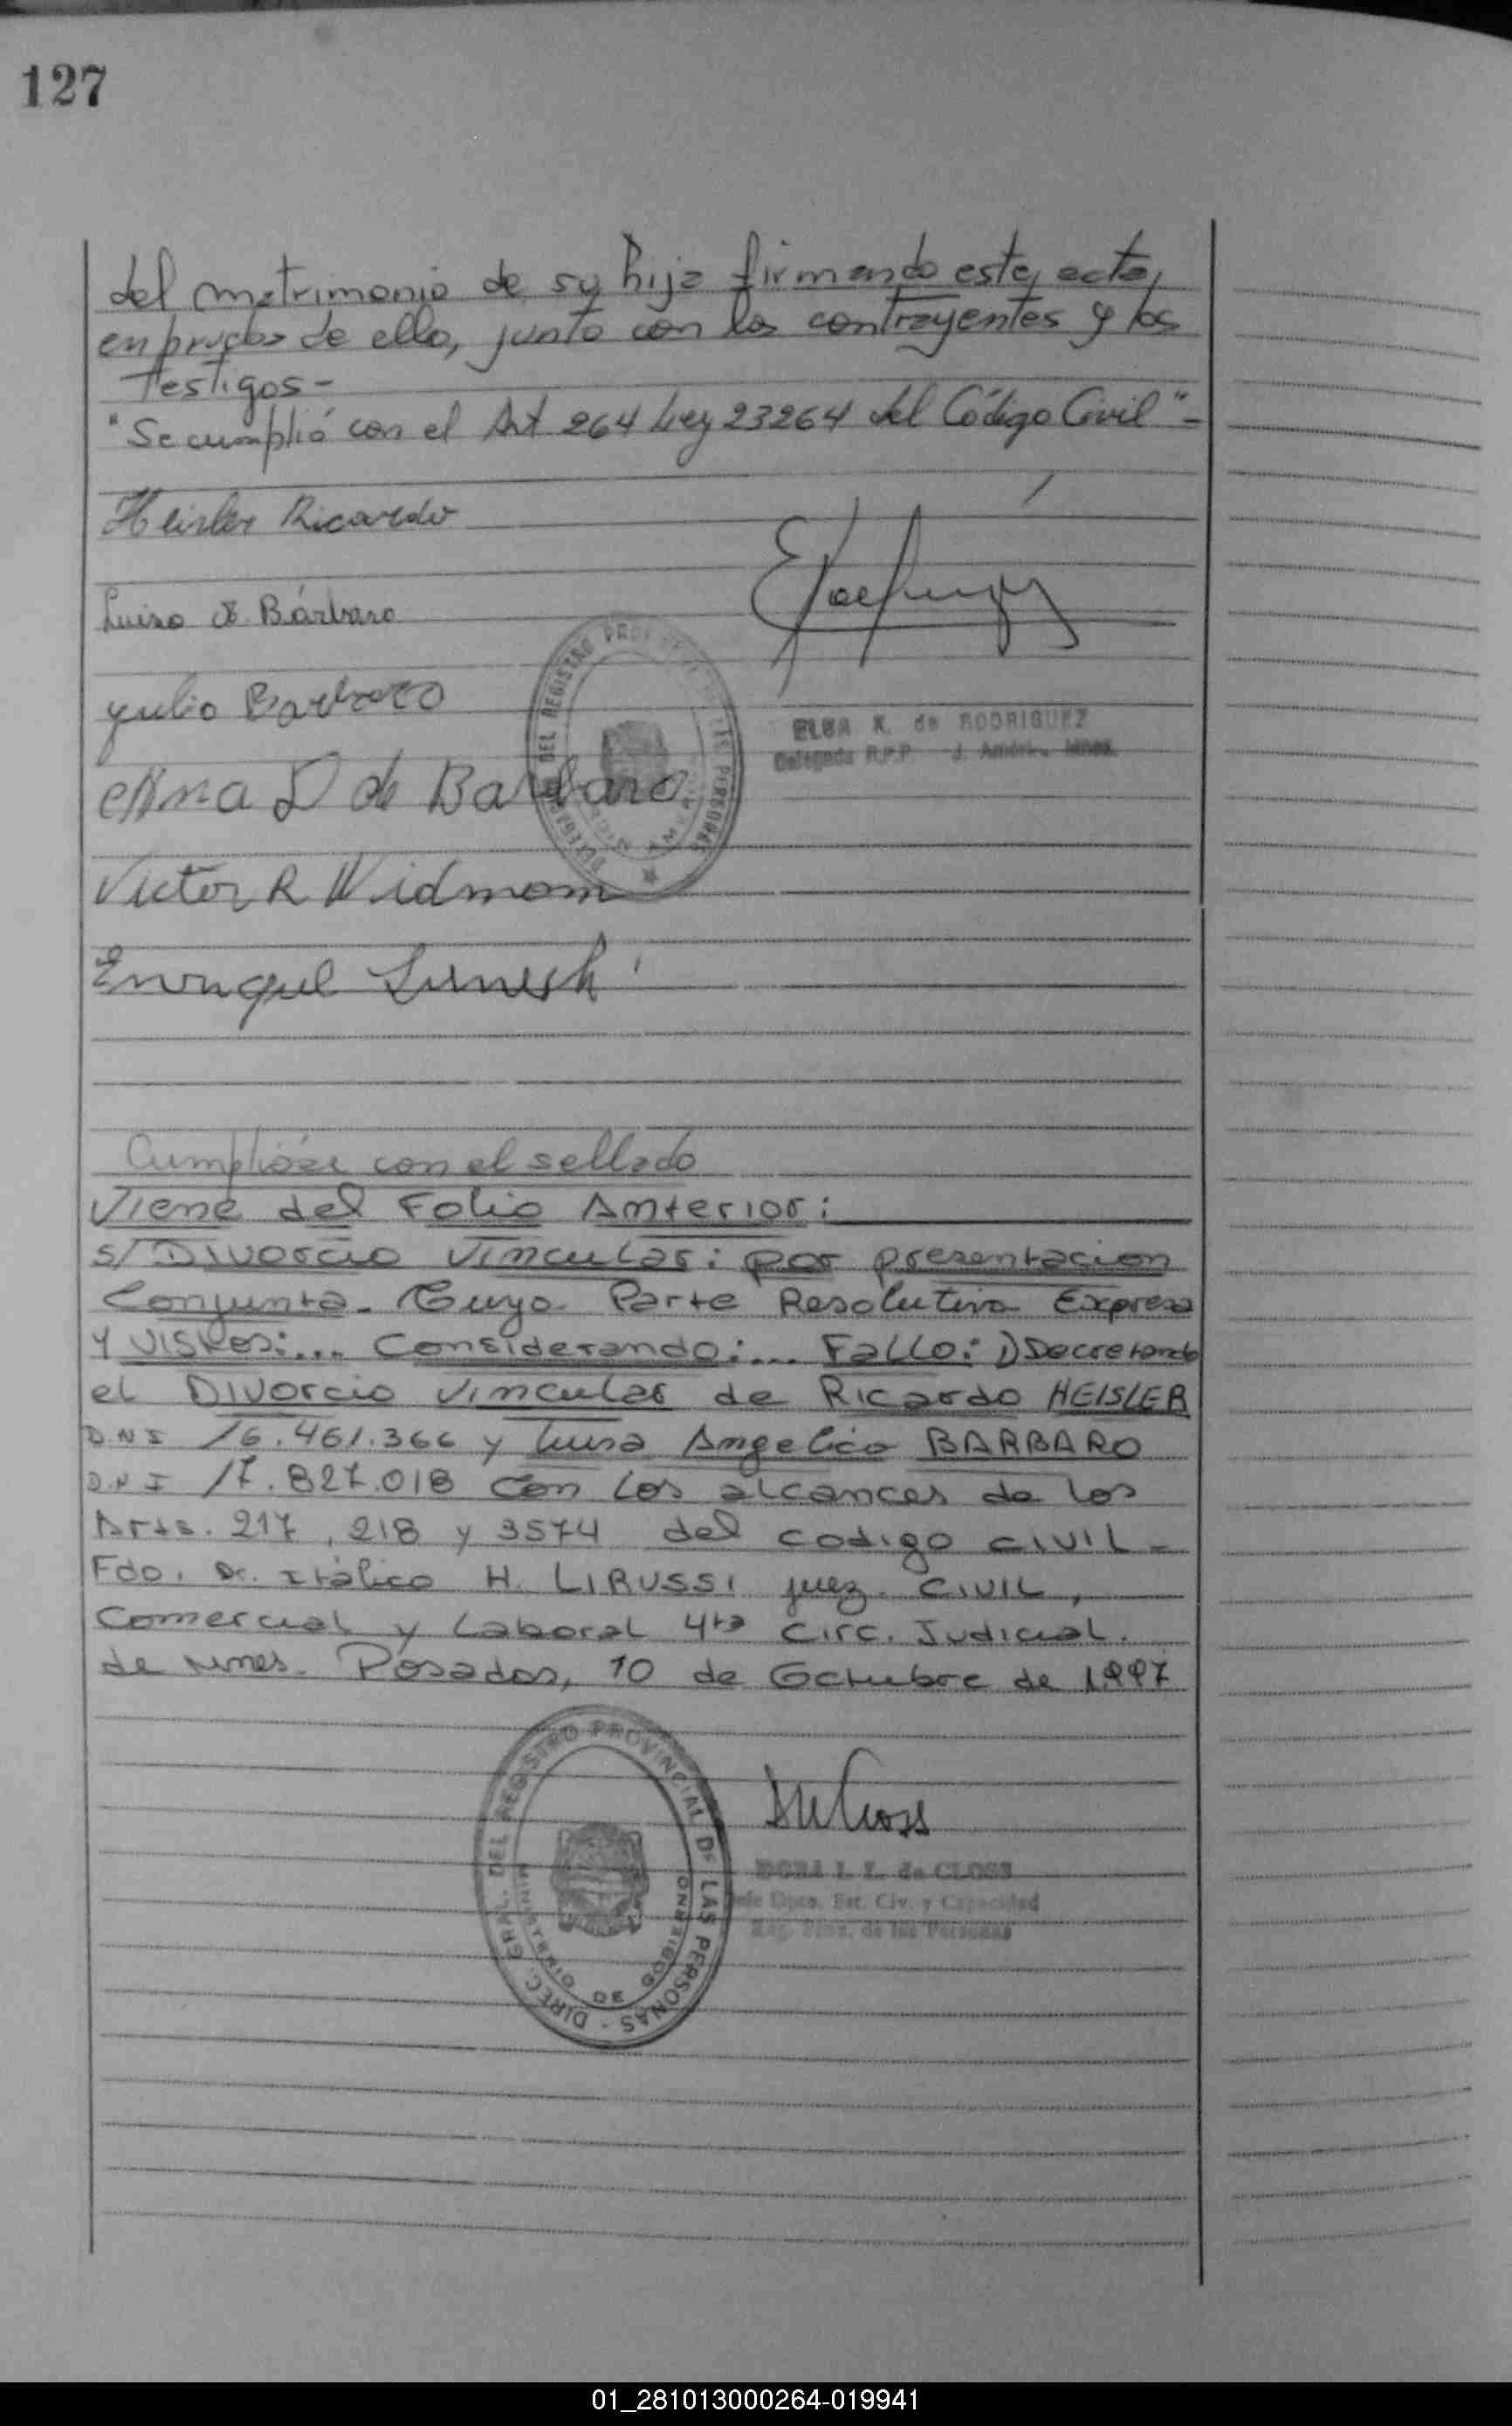 127
del matrimonio de su hija firmando este, acta,
en prueba de ello, junto con los contrayentes y los
Testigos-
"Se cumplió con el Art 264 Ley 23264 del Código Civil"-
Heisler Ricardo
Luisa A. Bárbaro
yulio Barbaro
ELSA K. de RODRIGUEZ
Delegada R.P.P. J. Mnes.
DEL REGISTRO DE LAS PERSONAS
Anna D de Barbaro
Victor R Widmann
Enrique
Cumplióse con el sellado
Viene del Folio Anterior:
s/ Divorcio Vincular: por presentacion
Conjunta. Cuya Parte Resolutiva Expresa
Y Vistos:... Considerando:... Fallo: 1) Decretando
el Divorcio Vincular de Ricardo HEISLER
D.N I 16.461.366 y Luisa Angelica BARBARO
D.N I 17.827.018 con los alcances de los
Arts. 217, 218 y 3574 del codigo CIVIL-
Fdo. Dr. Itálico H. LIRUSSI juez. CIVIL,
Comercial y Laboral 4ta Circ. Judicial.
de Mnes. Posadas, 10 de Octubre de 1997
DIREC. GRAL. DEL REGISTRO PROVINCIAL DE LAS PERSONAS -
MINISTERIO DE GOBIERNO
de CLOSS
Jefe Dpto. Est. Civ. y Capacidad
Reg. Prov. de las Personas
01_281013000264-019941